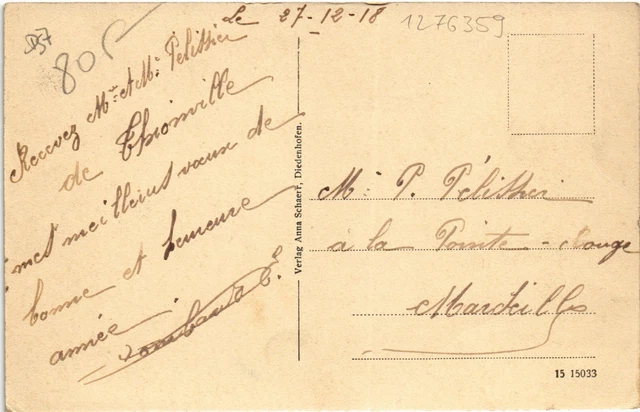 Le 27-12-18
1276359
D57
80
Recevez Mr et Me Pélissier
de Thionville
mes meilleurs vœux de
bonne et heureuse
année.
Verlag Anna Schaerf, Diedenhofen.
Mr P. Pélissier
à la Pointe-Rouge
Marseille
15 15033